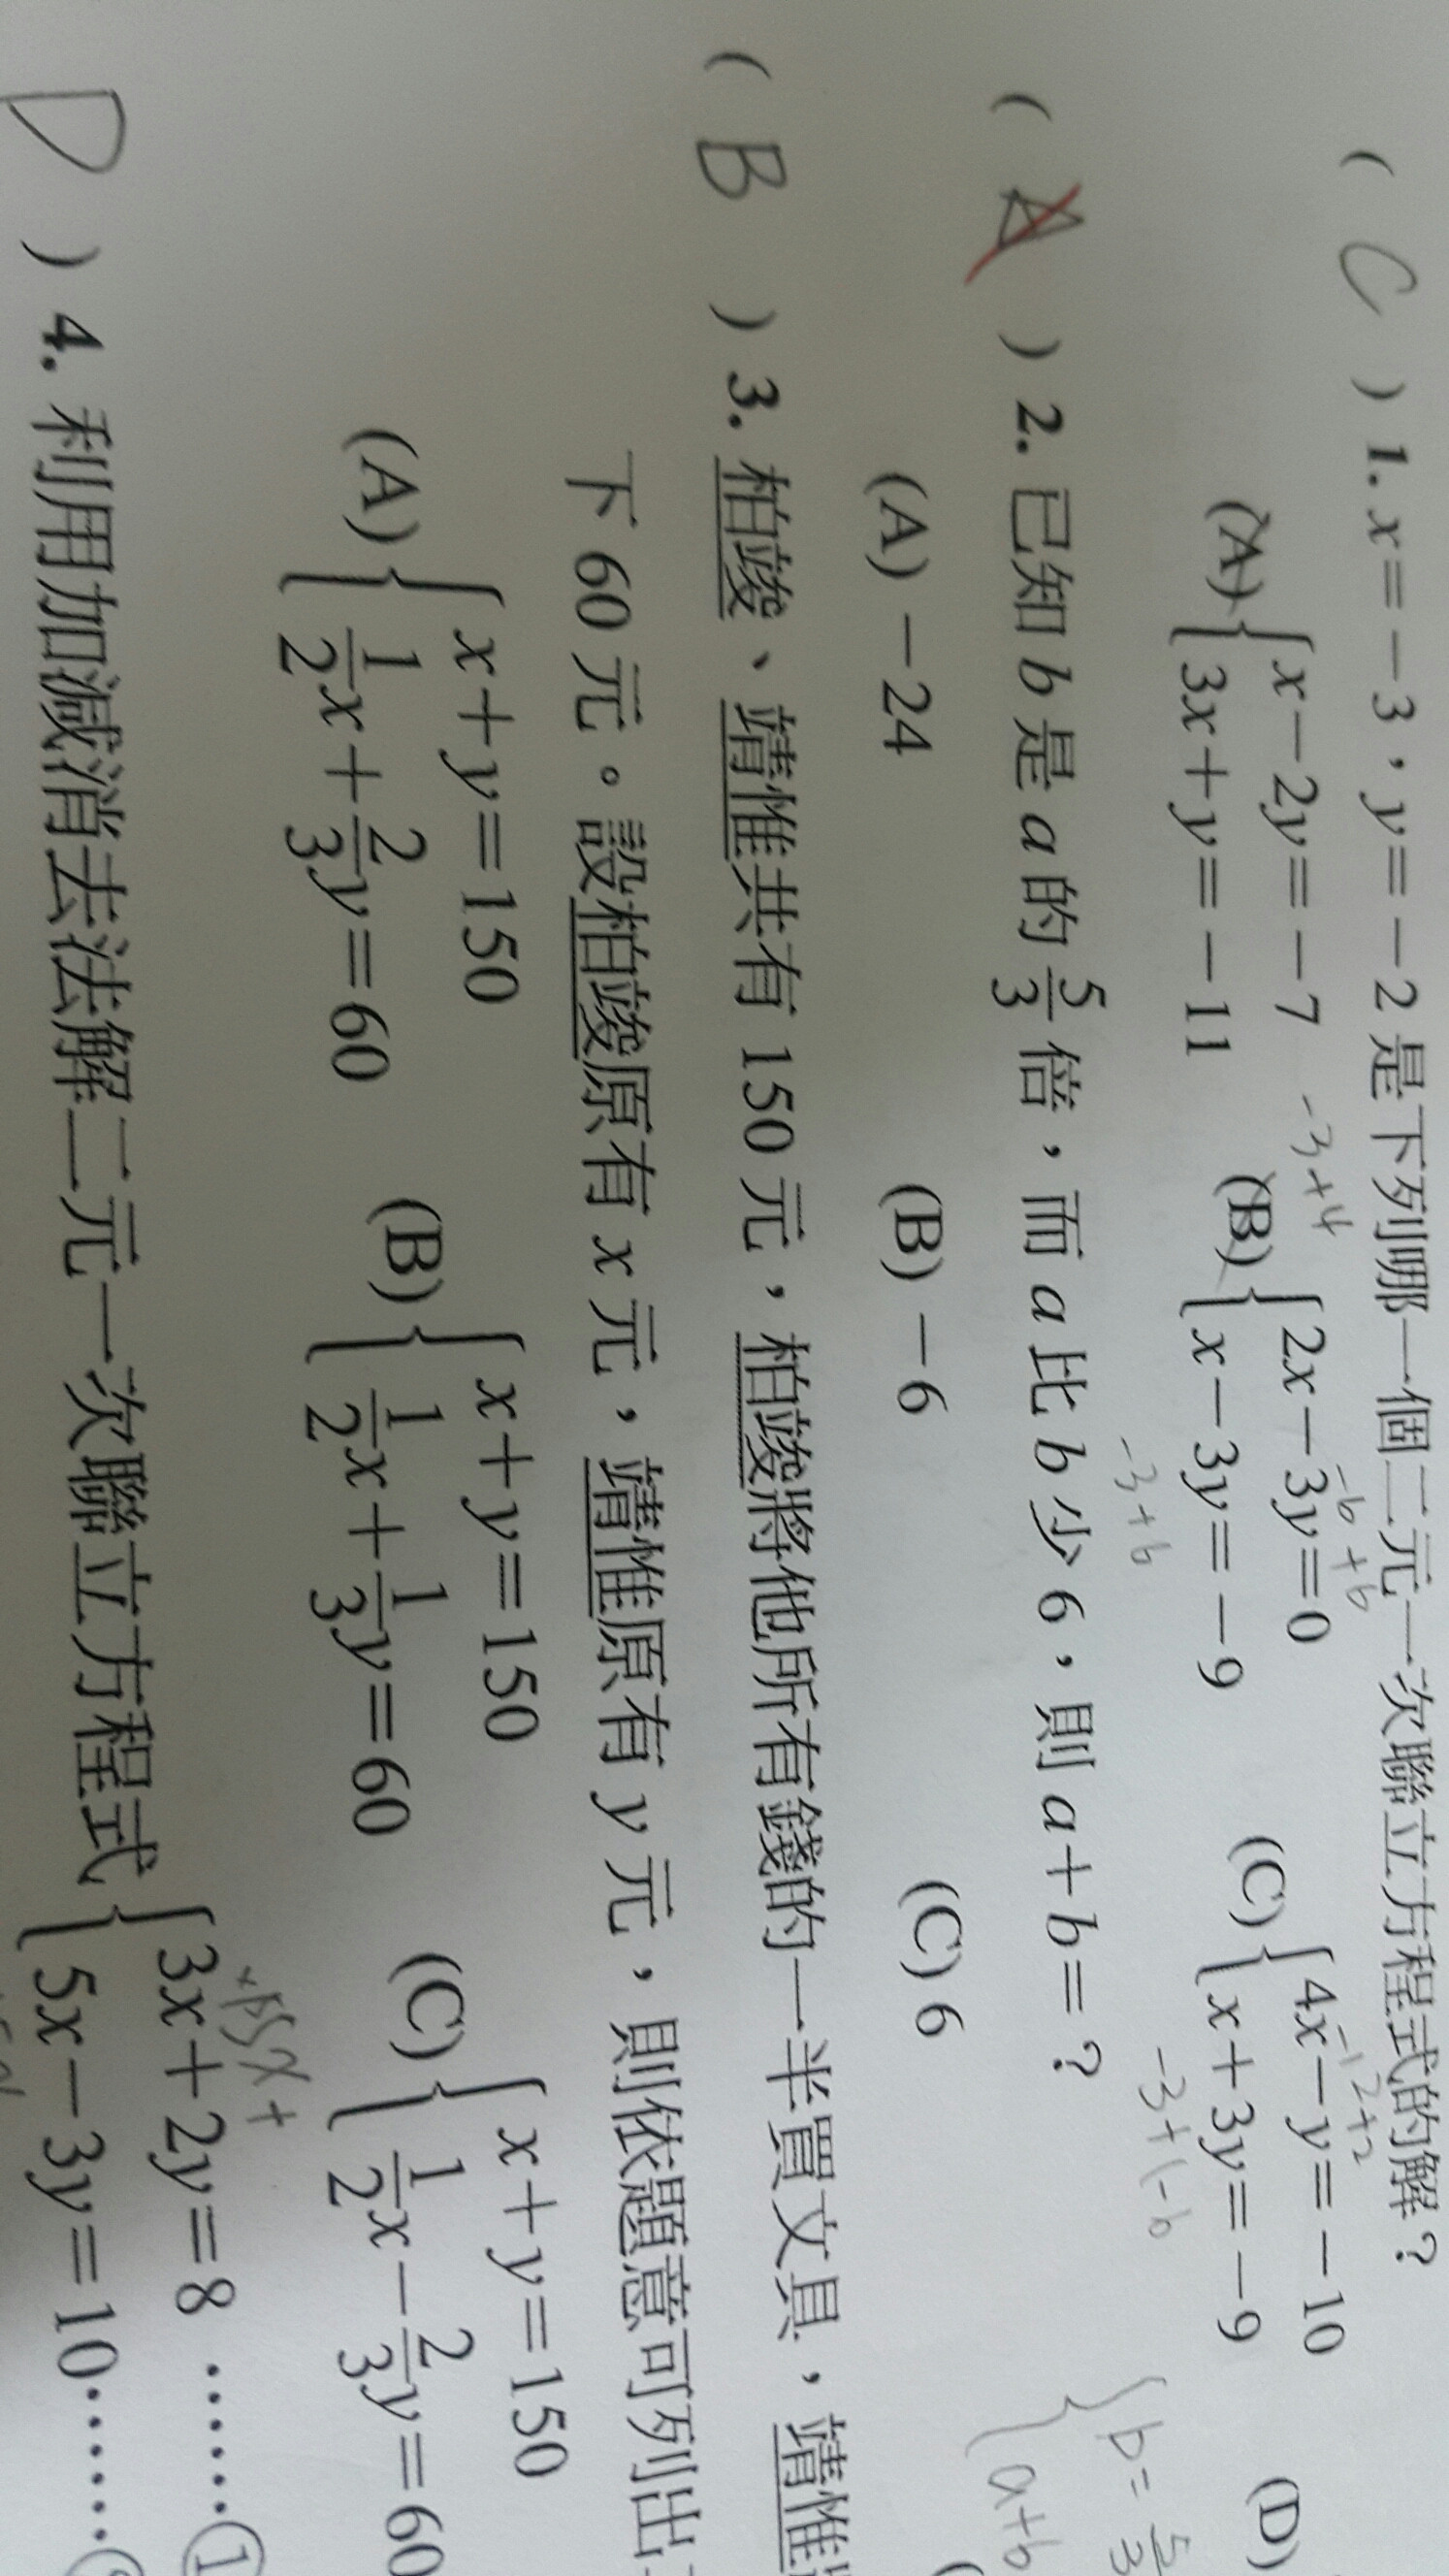 ( C ) 1. x=-3，y=-2 是下列哪一個二元一次聯立方程式的解？
(A) { x-2y=-7
3x+y=-11
-3+4
(B) { 2x-3y=0
x-3y=-9
-6+6
-3+6
(C) { 4x-y=-10
x+3y=-9
-12+2
-3+(-6
(D)
( A ) 2. 已知 b 是 a 的 5/3 倍，而 a 比 b 少 6，則 a+b=？
{ b= 5/3
a+b
(A) -24 (B) -6 (C) 6 (
( B ) 3. 柏竣、靖惟共有 150 元，柏竣將他所有錢的一半買文具，靖惟
下 60 元。設柏竣原有 x 元，靖惟原有 y 元，則依題意可列出
(A) { x+y=150
1/2x+2/3y=60
(B) { x+y=150
1/2x+1/3y=60
(C) { x+y=150
1/2x-2/3y=60
D ) 4. 利用加減消去法解二元一次聯立方程式 { 3x+2y=8 ……①
5x-3y=10……